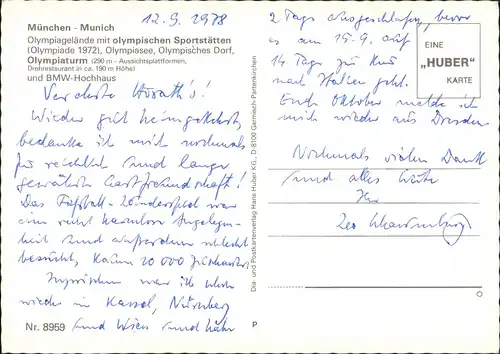 München - Munich
Olympiagelände mit olympischen Sportstätten
(Olympiade 1972), Olympiasee, Olympisches Dorf,
Olympiaturm (290 m - Aussichtsplattformen,
Drehrestaurant in ca. 190 m Höhe)
und BMW-Hochhaus
12.9.1978
Verehrte Horath's!
Wieder gut heimgekehrt,
bedanke ich mich nochmals
für reichlich und lange
gewährte Gastfreundschaft!
Das Fußball-Länderspiel war
eine recht harmlose Angelegen-
heit und außerdem schlecht
besucht, kaum 10 000 Zuschauer.
Inzwischen war ich schon
wieder in Kassel, Nürnberg
und Wien und habe
Nr. 8959
2 Tage ausgeschlafen, bevor
es am 15.9. auf
14 Tage zur Kur
nach Italien geht.
Ende Oktober melde ich
mich wieder aus Dresden.
Nochmals vielen Dank
und alles Gute
Ihr
EINE
„HUBER"
KARTE
Dia- und Postkartenverlag Hans Huber KG., D 8100 Garmisch-Partenkirchen
P